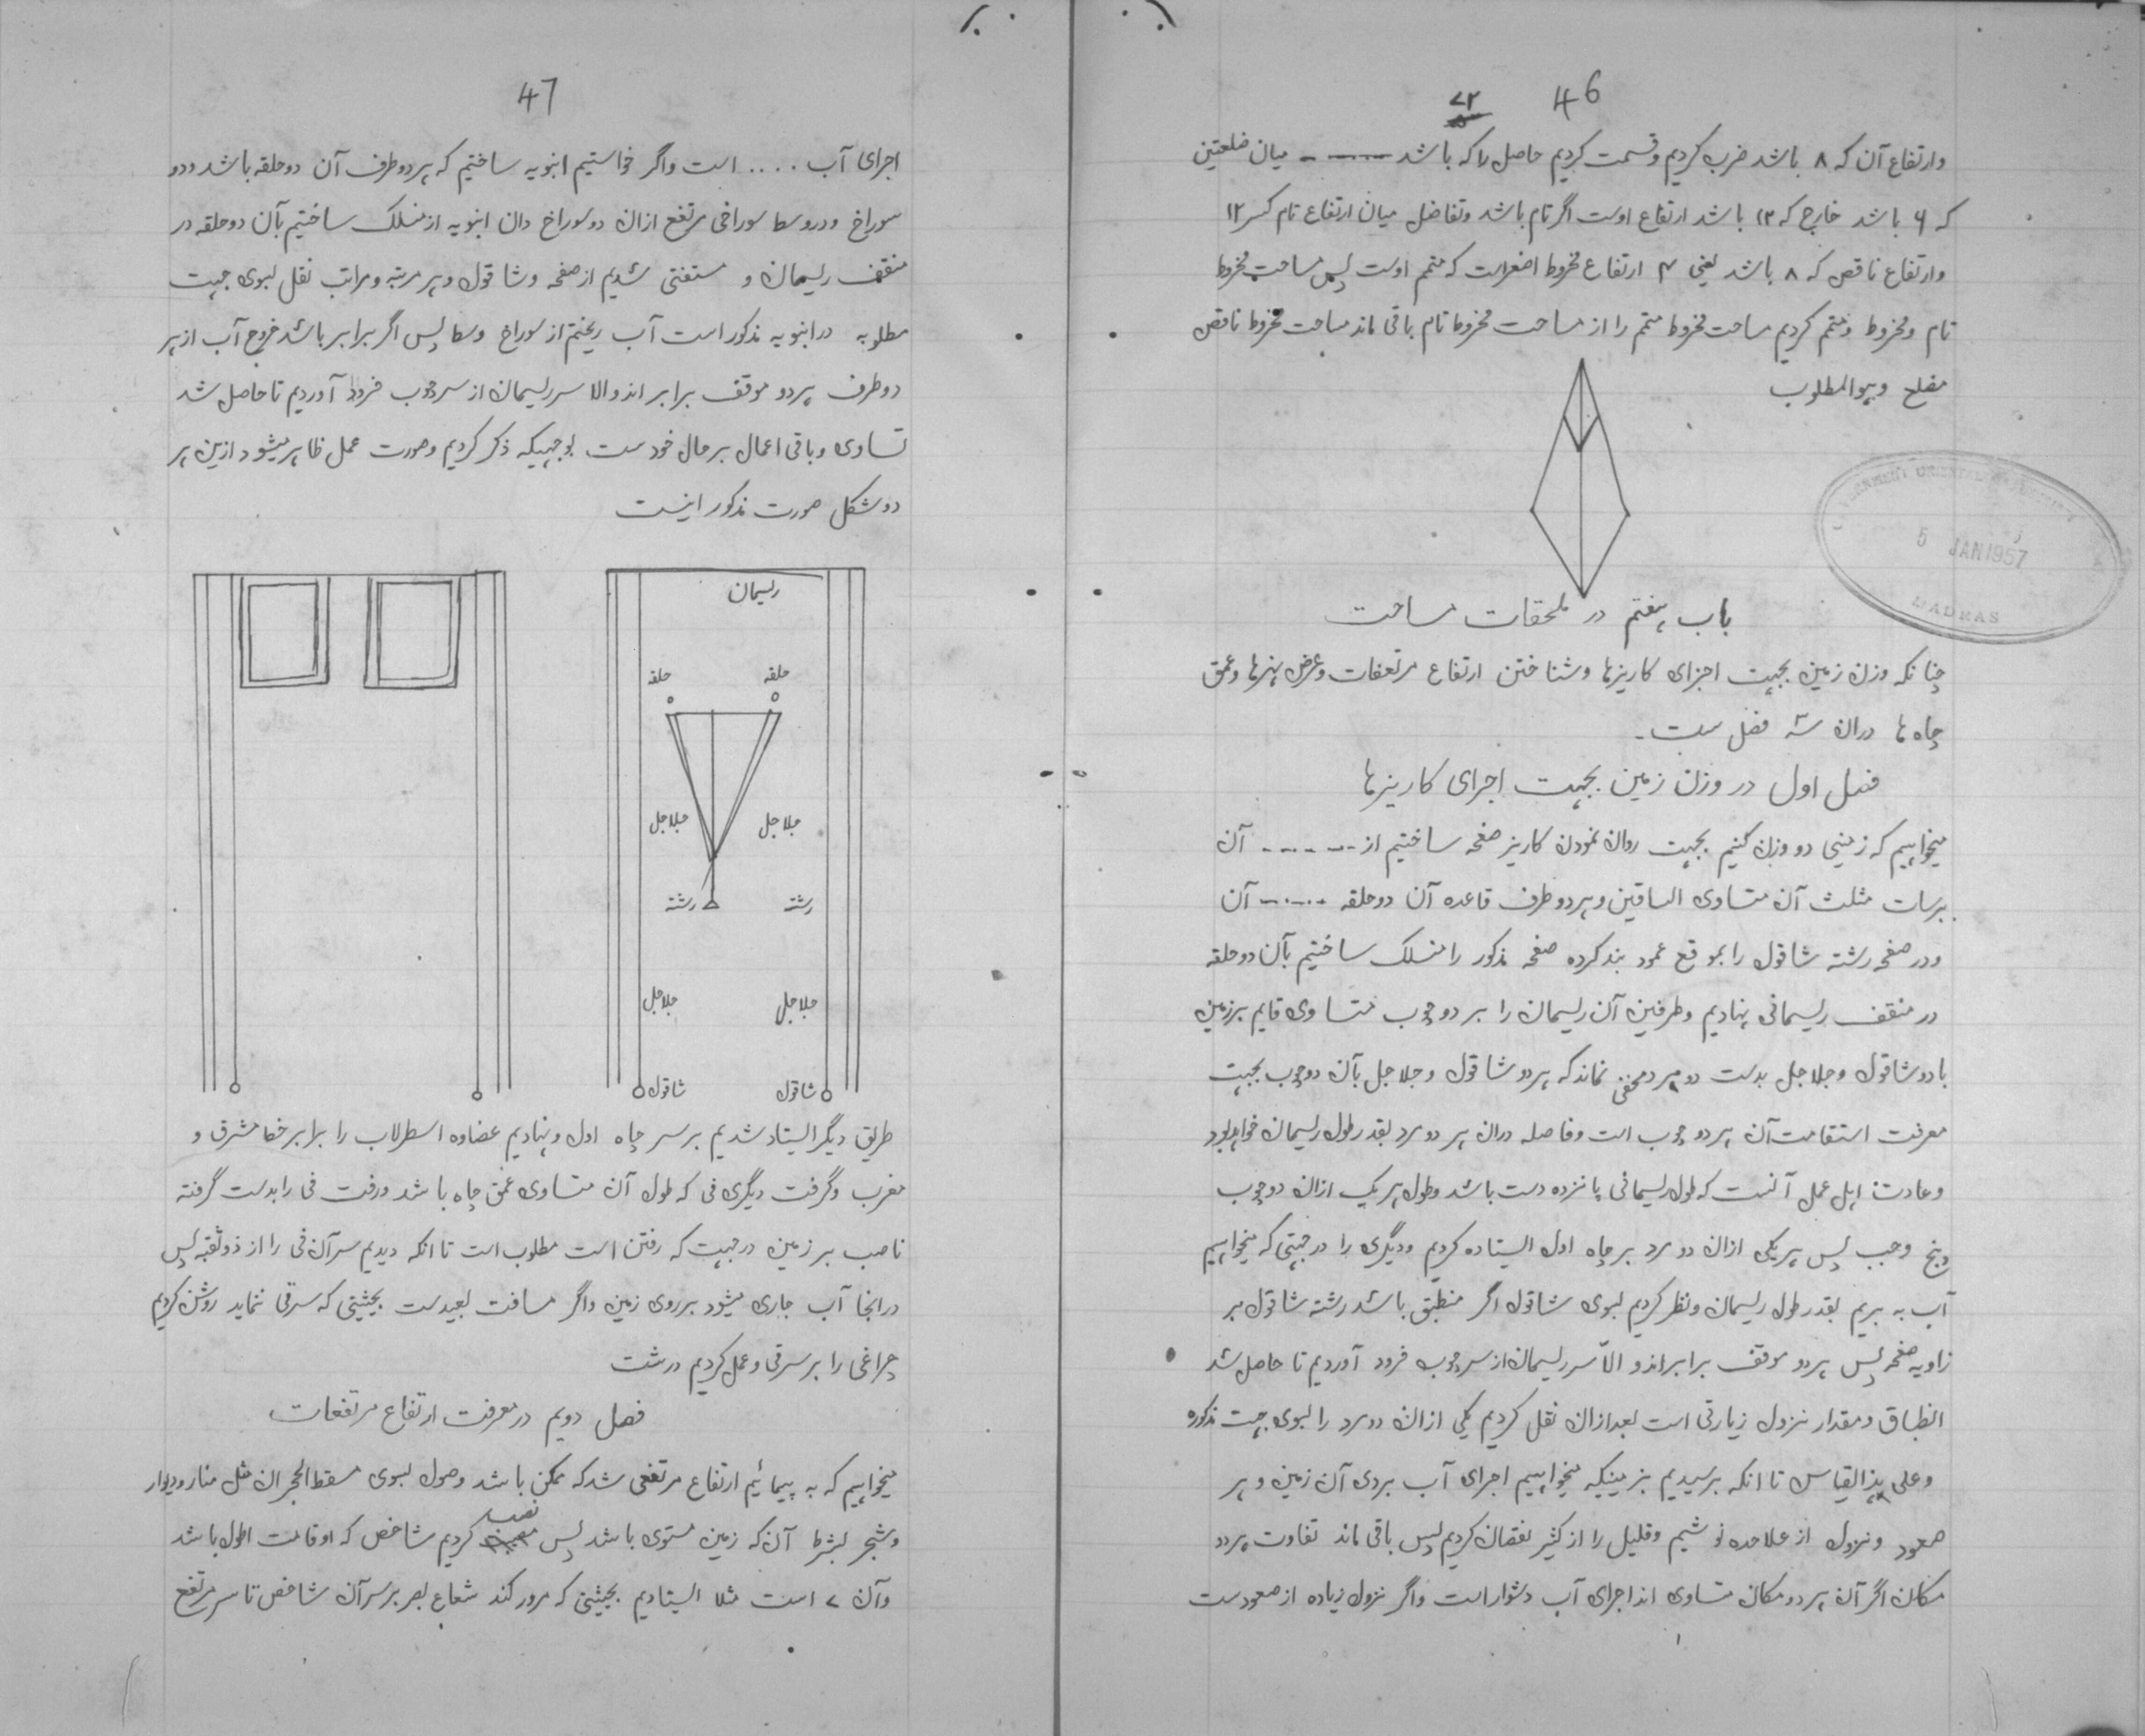 46
۷۲
وارتفاع آن که ۸ باشد ضرب کردیم و قسمت کردیم حاصل را که باشد ------ میان ضلعتین
که ۶ باشد خارج که ۱۲ باشد ارتفاع اوست اگر تام باشد و تفاضل میان ارتفاع تام که ۱۲
وارتفاع ناقص که ۸ باشد یعنی ۴ ارتفاع مخروط اصغراست که متمم اوست پس مساحت مخروط
تام ومخروط ومتمم کردیم مساحت مخروط متمم را از مساحت مخروط تام باقی ماند مساحت مخروط ناقص
مضلع وہوالمطلوب
باب ہفتم در ملحقات مساحت
چنانکه وزن زمین بجہت اجرای کاریزہا وشناختن ارتفاع مرتفعات وعرض نہرہا وعمق
چاه ہا دران سہ فصل ست ۔
فصل اول در وزن زمین بجہت اجرای کاریزہا
میخواہیم کہ زمینی دو وزن کنیم بجہت روان نمودن کاریز صفحہ ساختیم از ------ آن
برسات مثلث آن متساوی الساقین وہردو طرف قاعده آن دو حلقہ ------ آن
ودر صفحہ رشتہ شاقول را بموقع عمود بند کرده صفحہ مذکور را منسلک ساختیم بآن دو حلقہ
در منقف ریسمانی نہادیم وطرفین آن ریسمان را بر دو چوب متساوی قایم برزمین
با دو شاقول وجلاجل بدست دو مرد مخفی نماند کہ ہردو شاقول وجلاجل بآن دو چوب بجہت
معرفت استقامت آن ہردو چوب است وفاصلہ دران ہردو مرد بقدر طول ریسمان خواہد بود
وعادت اہل عمل آنست کہ طول ریسمانی پانزده دست باشد وطول ہریک ازان دو چوب
وپنج وجب پس ہریکی ازان دو مرد بر چاه اول ایستاده کردیم ودیگری را در جہتی کہ میخواہیم
آب بہ بریم بقدر طول ریسمان ونظر کردیم بسوی شاقول اگر منطبق باشد رشتہ شاقول بر
زاویہ صفحہ پس ہردو موقف برابر اند والّا سر ریسمان از سر چوب فرود آوردیم تا حاصل شد
انطباق ومقدار نزول زیارتی است بعد ازان نقل کردیم یکی ازان دو مرد را بسوی جہت مذکوره
وعلی ہذالقیاس تا انکہ برسیدیم بزمینیکہ میخواہیم اجرای آب بردی آن زمین وہر
صعود ونزول از علاحده نوشیم وقلیل را از کثیر نقصان کردیم پس باقی ماند تفاوت ہردو
مکان اگر آن ہردو مکان متساوی اند اجرای آب دشوار است واگر نزول زیاده از صعودست
GOVERNMENT ORIENTAL
5 JAN 1957
MADRAS
47
اجرای آب .... است واگر خواستیم انبوبہ ساختیم کہ ہردو طرف آن دو حلقہ باشد ودو
سوراخ ودر وسط سوراخی مرتفع ازان دو سوراخ دان انبوبہ از منسلک ساختیم بآن دو حلقہ در
منقف ریسمان و مستغنی شدیم از صفحہ وشاقول وہر مرتبہ ومراتب نقل بسوی جہت
مطلوبہ در انبوبہ مذکور است آب ریختم از سوراخ وسط پس اگر برابر باشد خروج آب از ہر
دو طرف ہردو موقف برابر اند والا سر ریسمان از سر چوب فرود آوردیم تا حاصل شد
تساوی وباقی اعمال بر حال خودست بوجہیکہ ذکر کردیم وصورت عمل ظاہر میشود ازین ہر
دو شکل صورت مذکور اینست
ریسمان
حلقہ حلقہ
جلاجل جلاجل
رشتہ رشتہ
جلاجل جلاجل
شاقول شاقول
طریق دیگر ایستاد شدیم بر سر چاه اول ونہادیم عضاوه اسطرلاب را برابر خط مشرق و
مغرب وگرفت دیگری نی کہ طول آن متساوی عمق چاه باشد ورفت نی را بدست گرفتہ
ناصب بر زمین درجہت کہ رفتن است مطلوب است تا انکہ دیدیم سر آن نی را از ذوثقبہ پس
درانجا آب جاری میشود بر روی زمین واگر مسافت بعیدست بحیثیتی کہ سر نی ننماید روشن کردیم
چراغی را بر سر نی وعمل کردیم درشت
فصل دویم در معرفت ارتفاع مرتفعات
میخواہیم کہ بہ پیمائیم ارتفاع مرتفعی شد کہ ممکن باشد وصول بسوی مسقط الحجر ان مثل منار ودیوار
وشجر بشرط آن کہ زمین مستوی باشد پس نصب کردیم شاخص کہ او قامت اطول باشد
وآن ۷ است مثلا ایستادیم بحیثیتی کہ مرور کند شعاع بصر بر سر آن شاخص تا سر مرتفع